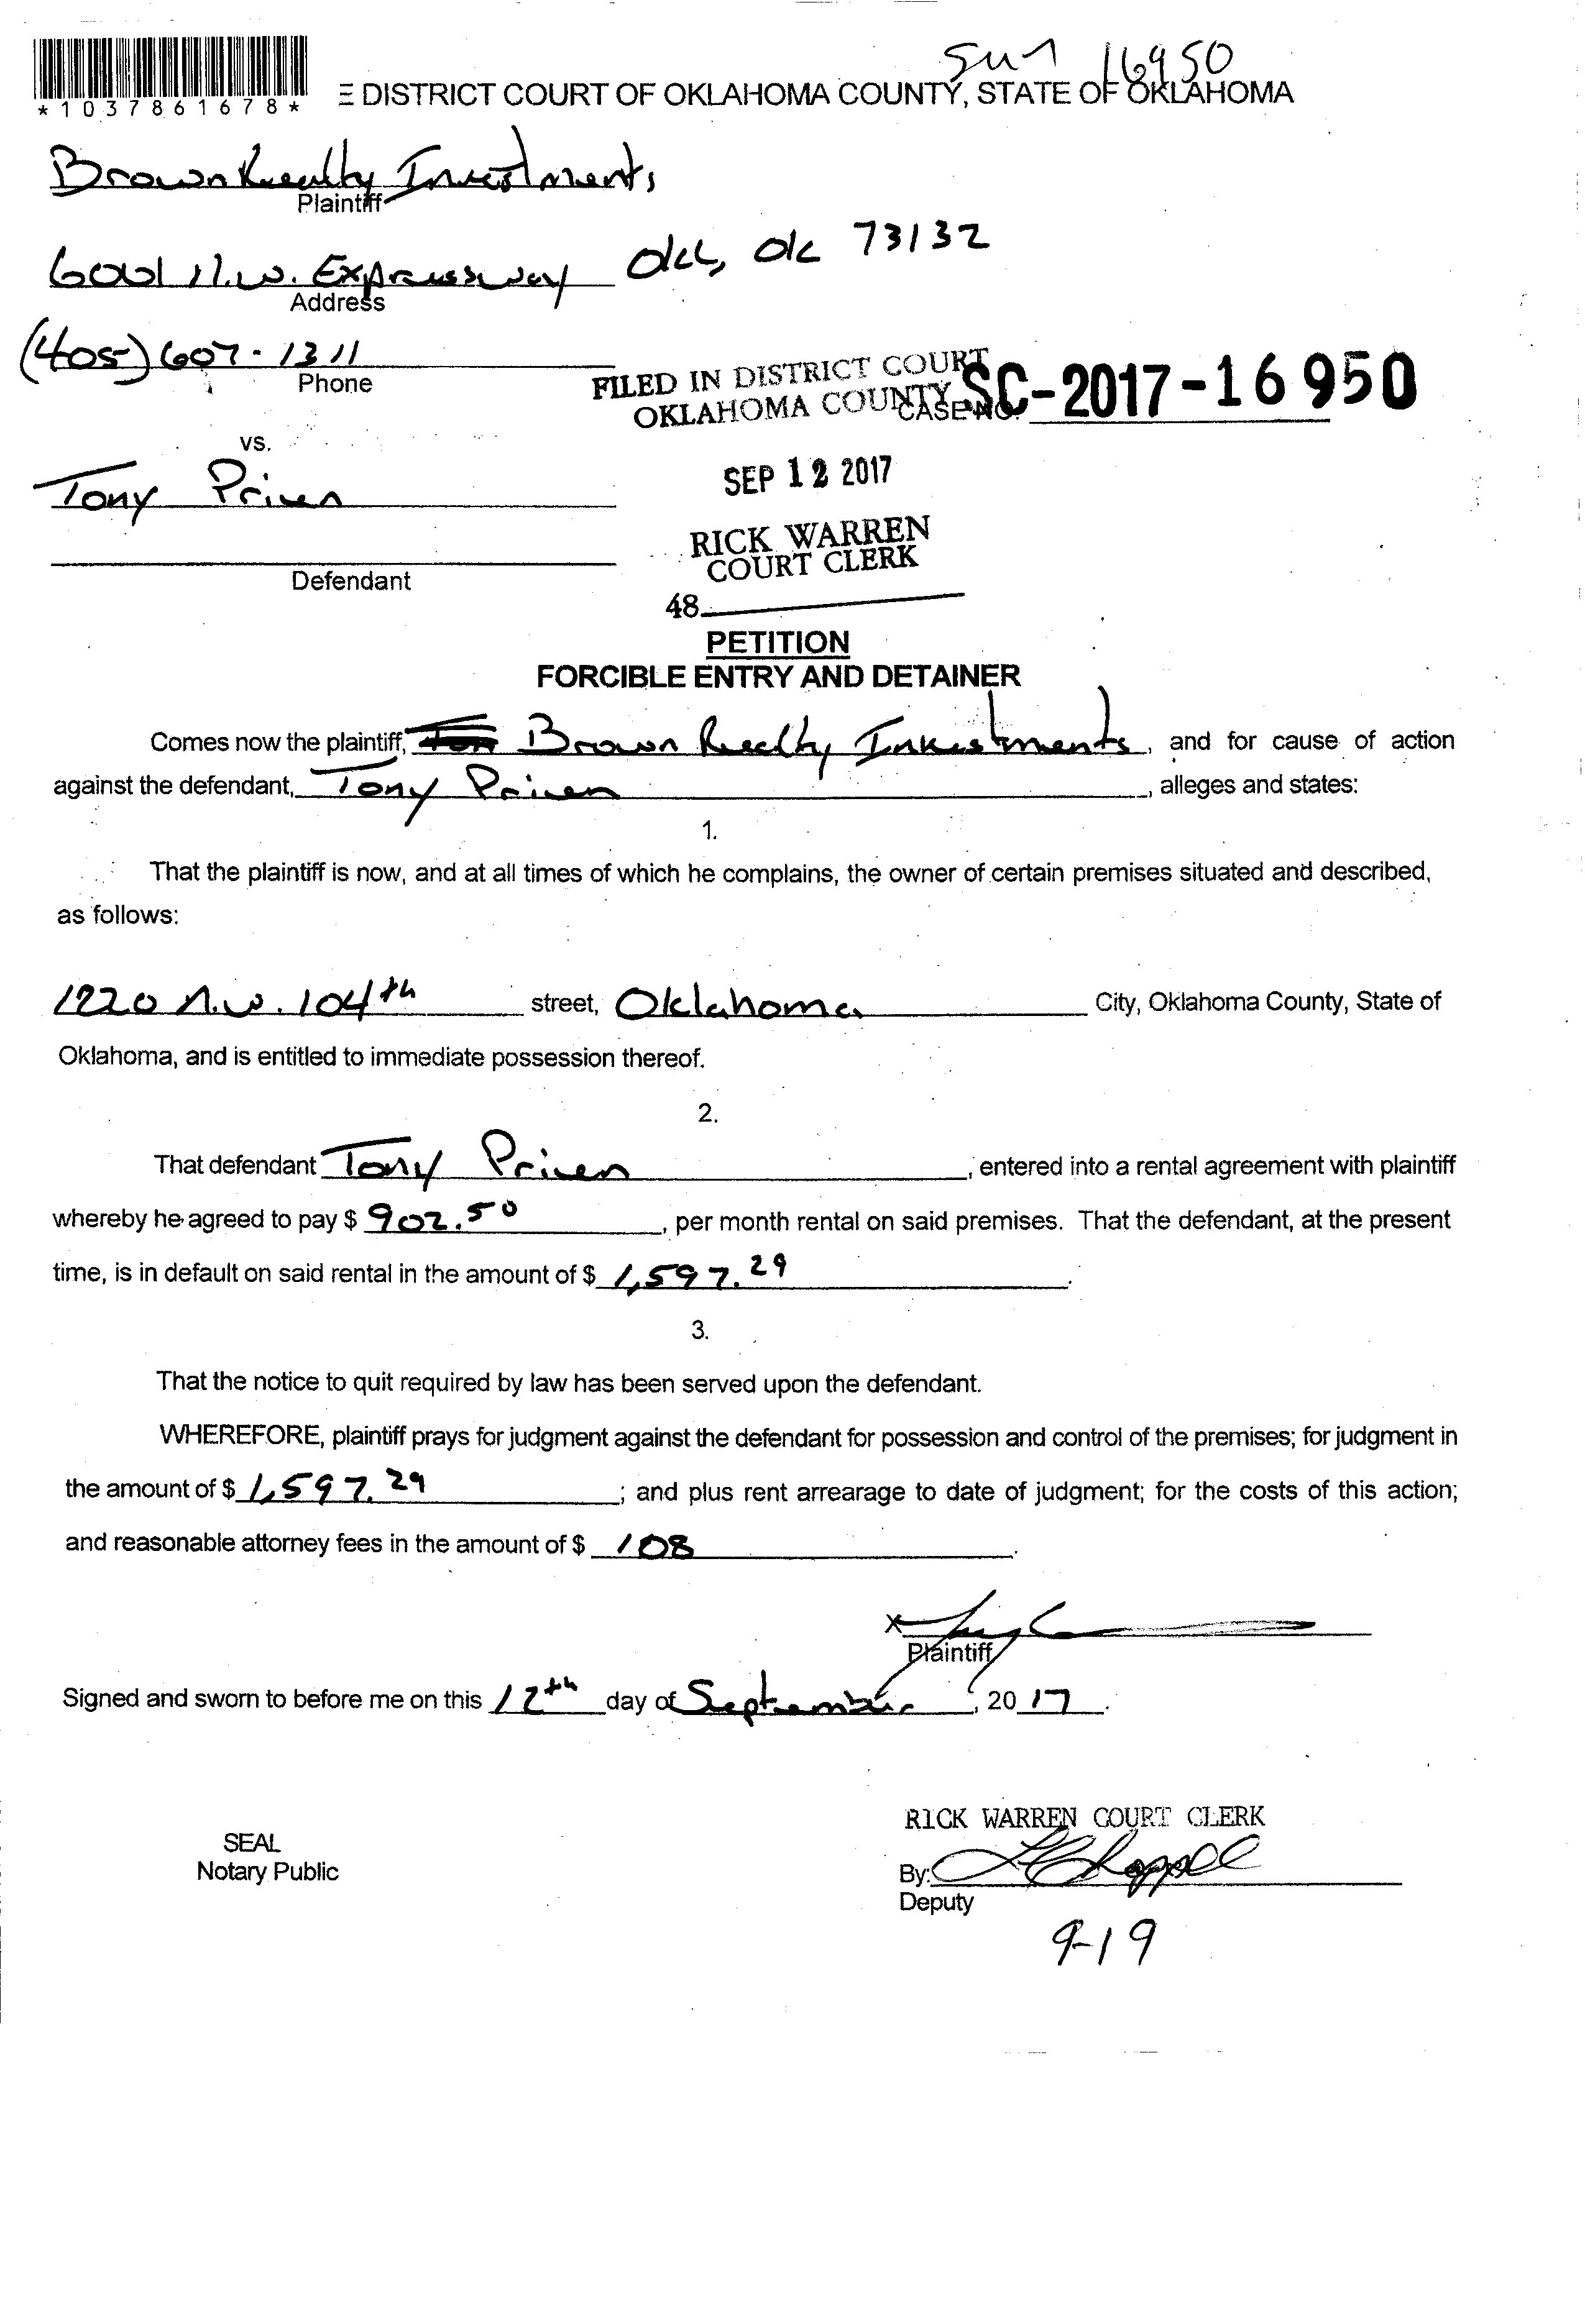 sm 16950
*1037861678* E DISTRICT COURT OF OKLAHOMA COUNTY, STATE OF OKLAHOMA
Brown Realty Investments
Plaintiff
6001 N.W. Expressway OKC, OK 73132
Address
(405) 607-1311
Phone
FILED IN DISTRICT COURT
OKLAHOMA COUNTY
CASE NO. SC-2017-16950
vs.
SEP 12 2017
Tony
RICK WARREN
COURT CLERK
Defendant
48
PETITION
FORCIBLE ENTRY AND DETAINER
Comes now the plaintiff, Brown Realty Investments, and for cause of action
against the defendant, Tony, alleges and states:
1.
That the plaintiff is now, and at all times of which he complains, the owner of certain premises situated and described,
as follows:
N.W. 104th street, Oklahoma City, Oklahoma County, State of
Oklahoma, and is entitled to immediate possession thereof.
2.
That defendant Tony, entered into a rental agreement with plaintiff
whereby he agreed to pay $ 902.50, per month rental on said premises. That the defendant, at the present
time, is in default on said rental in the amount of $ 1,597.29.
3.
That the notice to quit required by law has been served upon the defendant.
WHEREFORE, plaintiff prays for judgment against the defendant for possession and control of the premises; for judgment in
the amount of $ 1,597.29; and plus rent arrearage to date of judgment; for the costs of this action;
and reasonable attorney fees in the amount of $ 108.
X
Plaintiff
Signed and sworn to before me on this 12th day of September, 2017.
RICK WARREN COURT CLERK
SEAL
Notary Public
By:
Deputy
9-19